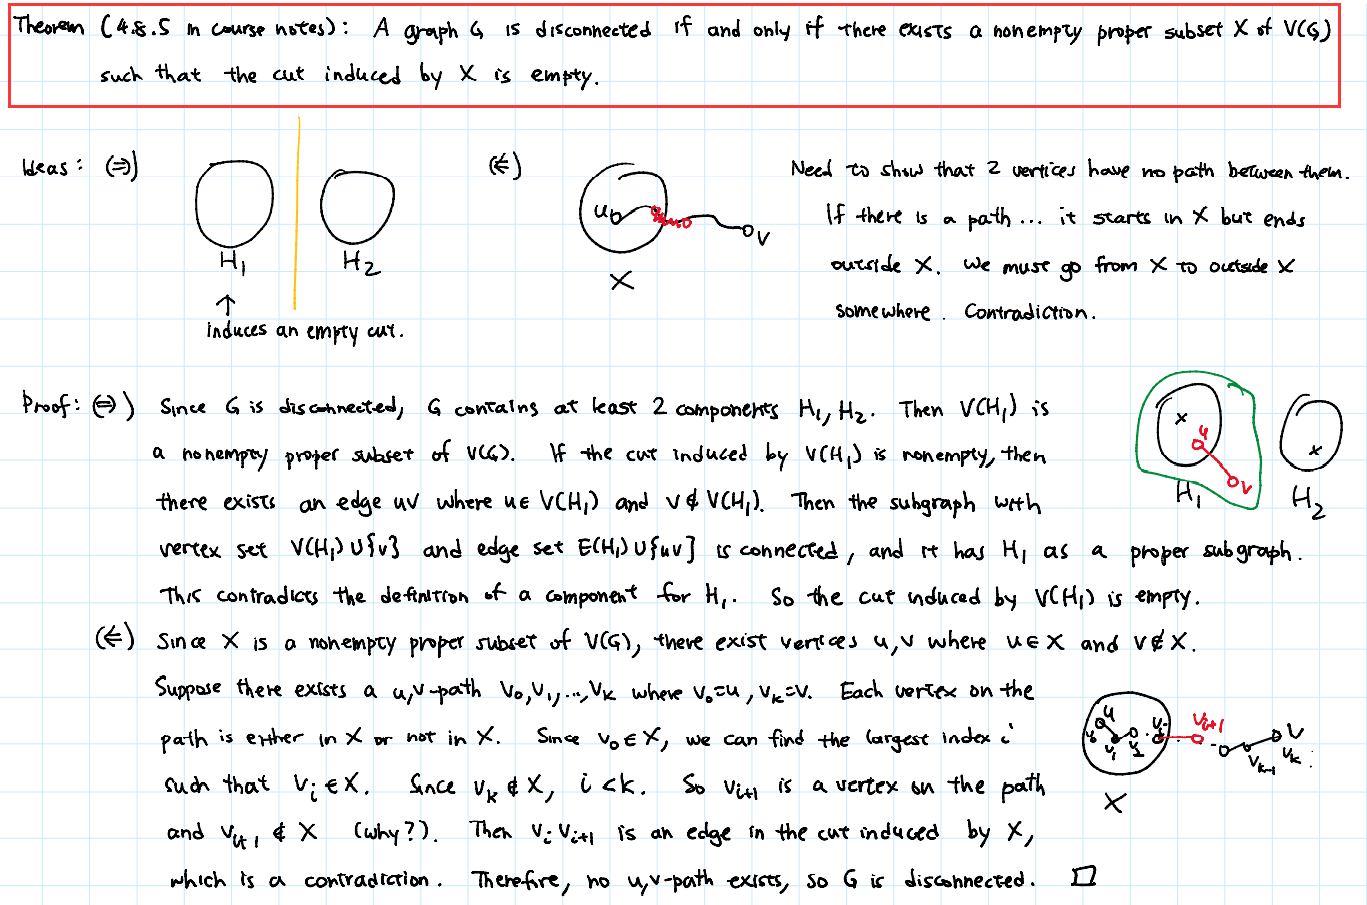 Theorem (4.8.5 in course notes): A graph G is disconnected if and only if there exists a nonempty proper subset X of V(G)
such that the cut induced by X is empty.
Ideas: (⇒)
H₁
H₂
↑
induces an empty cut.
(⇐)
u
v
X
Need to show that 2 vertices have no path between them.
If there is a path... it starts in X but ends
outside X. We must go from X to outside X
somewhere. Contradiction.
Proof: (⇒) Since G is disconnected, G contains at least 2 components H₁, H₂. Then V(H₁) is
a nonempty proper subset of V(G). If the cut induced by V(H₁) is nonempty, then
there exists an edge uv where u∈V(H₁) and v∉V(H₁). Then the subgraph with
vertex set V(H₁)∪{v} and edge set E(H₁)∪{uv} is connected, and it has H₁ as a proper subgraph.
This contradicts the definition of a component for H₁. So the cut induced by V(H₁) is empty.
x
u
v
H₁
x
H₂
(⇐) Since X is a nonempty proper subset of V(G), there exist vertices u,v where u∈X and v∉X.
Suppose there exists a u,v-path v₀,v₁,...,vₖ where v₀=u, vₖ=v. Each vertex on the
path is either in X or not in X. Since v₀∈X, we can find the largest index i
such that vᵢ∈X. Since vₖ∉X, i<k. So vᵢ₊₁ is a vertex on the path
and vᵢ₊₁∉X (why?). Then vᵢvᵢ₊₁ is an edge in the cut induced by X,
which is a contradiction. Therefore, no u,v-path exists, so G is disconnected. □
u
v₀
v₁
v₂
vᵢ
vᵢ₊₁
vₖ₋₁
v
vₖ
X